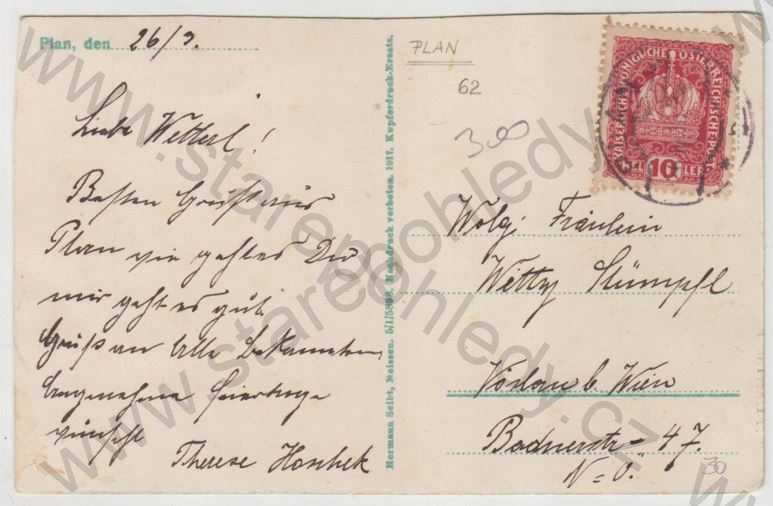 Plan, den 26/3.
Liebe Wetterl!
Besten Gruß aus
Plan wie geht es Dir
mir geht es gut
Gruß an Alle Bekannten
Angenehme Feiertage
wünscht
Therese Hoschek
Hermann Seibt, Meissen. Nachdruck verboten. 1917. Kupferdruck-Ersatz.
PLAN
62
300
KAISERLICHE KÖNIGLICHE ÖSTERREICHISCHE POST
10
Wolg. Fräulein
Wetty Stümpfl
Vöslau b. Wien
Badnerstr 47.
N=Ö.
30
www.starepohledy.cz
www.starepohledy.cz